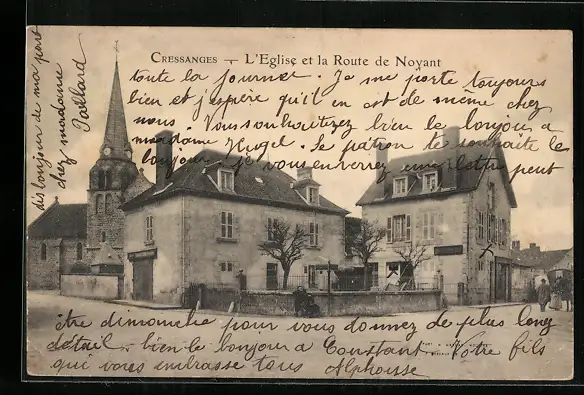 CRESSANGES — L'Eglise et la Route de Noyant
toute la journer. Ja me porte toujours
bien et j'espère qu'il en ast de même chez
nous. Vous souhaiterez bien le bonjoir a
madame Hugel. Se patron te souhaite le
bonjour je vous enverrez une lettre peut
être dimanche pour vous donnez de plus long
détail. bien le bonjour a Constant. Votre fils
qui vous embrasse tous Alphousse
dis bonjour de ma part
chez madame
Paillard